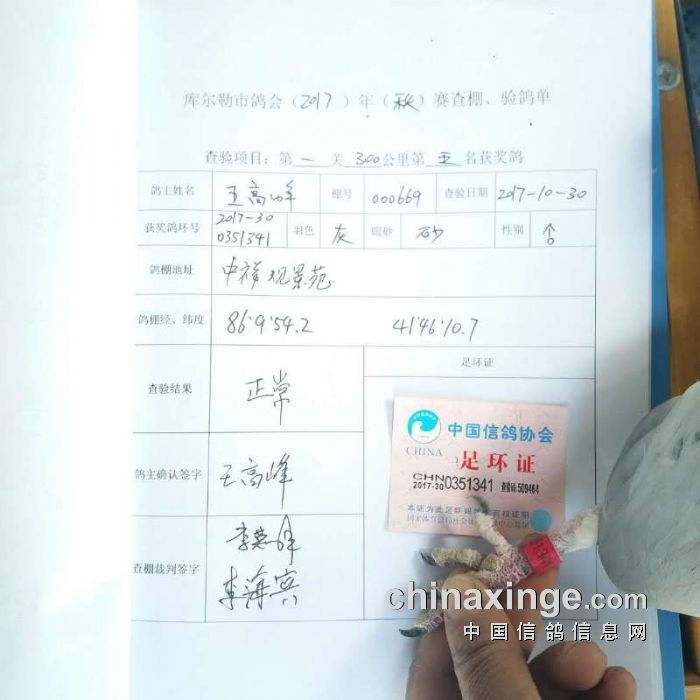 库尔勒市鸽会(2017)年(秋)赛查棚、验鸽单
查验项目:第 一 关 300公里第 五 名获奖鸽
鸽主姓名 王高峰 棚号 000669 查验日期 2017-10-30
获奖鸽环号 2017-30 0351341 羽色 灰 眼砂 砂 性别
鸽棚地址 中祥观景苑
鸽棚经、纬度 86°9'54.2 41°46'10.7
查验结果 正常
足环证
鸽主确认签字 王高峰
查棚裁判签字 李海宾
中国信鸽协会
CHINA
足环证
CHN
2017-30 0351341 查验码:509464
本证为此足环码 有权证明
国家体育总局社会体 中心监制
chinaxinge.com
中国信鸽信息网